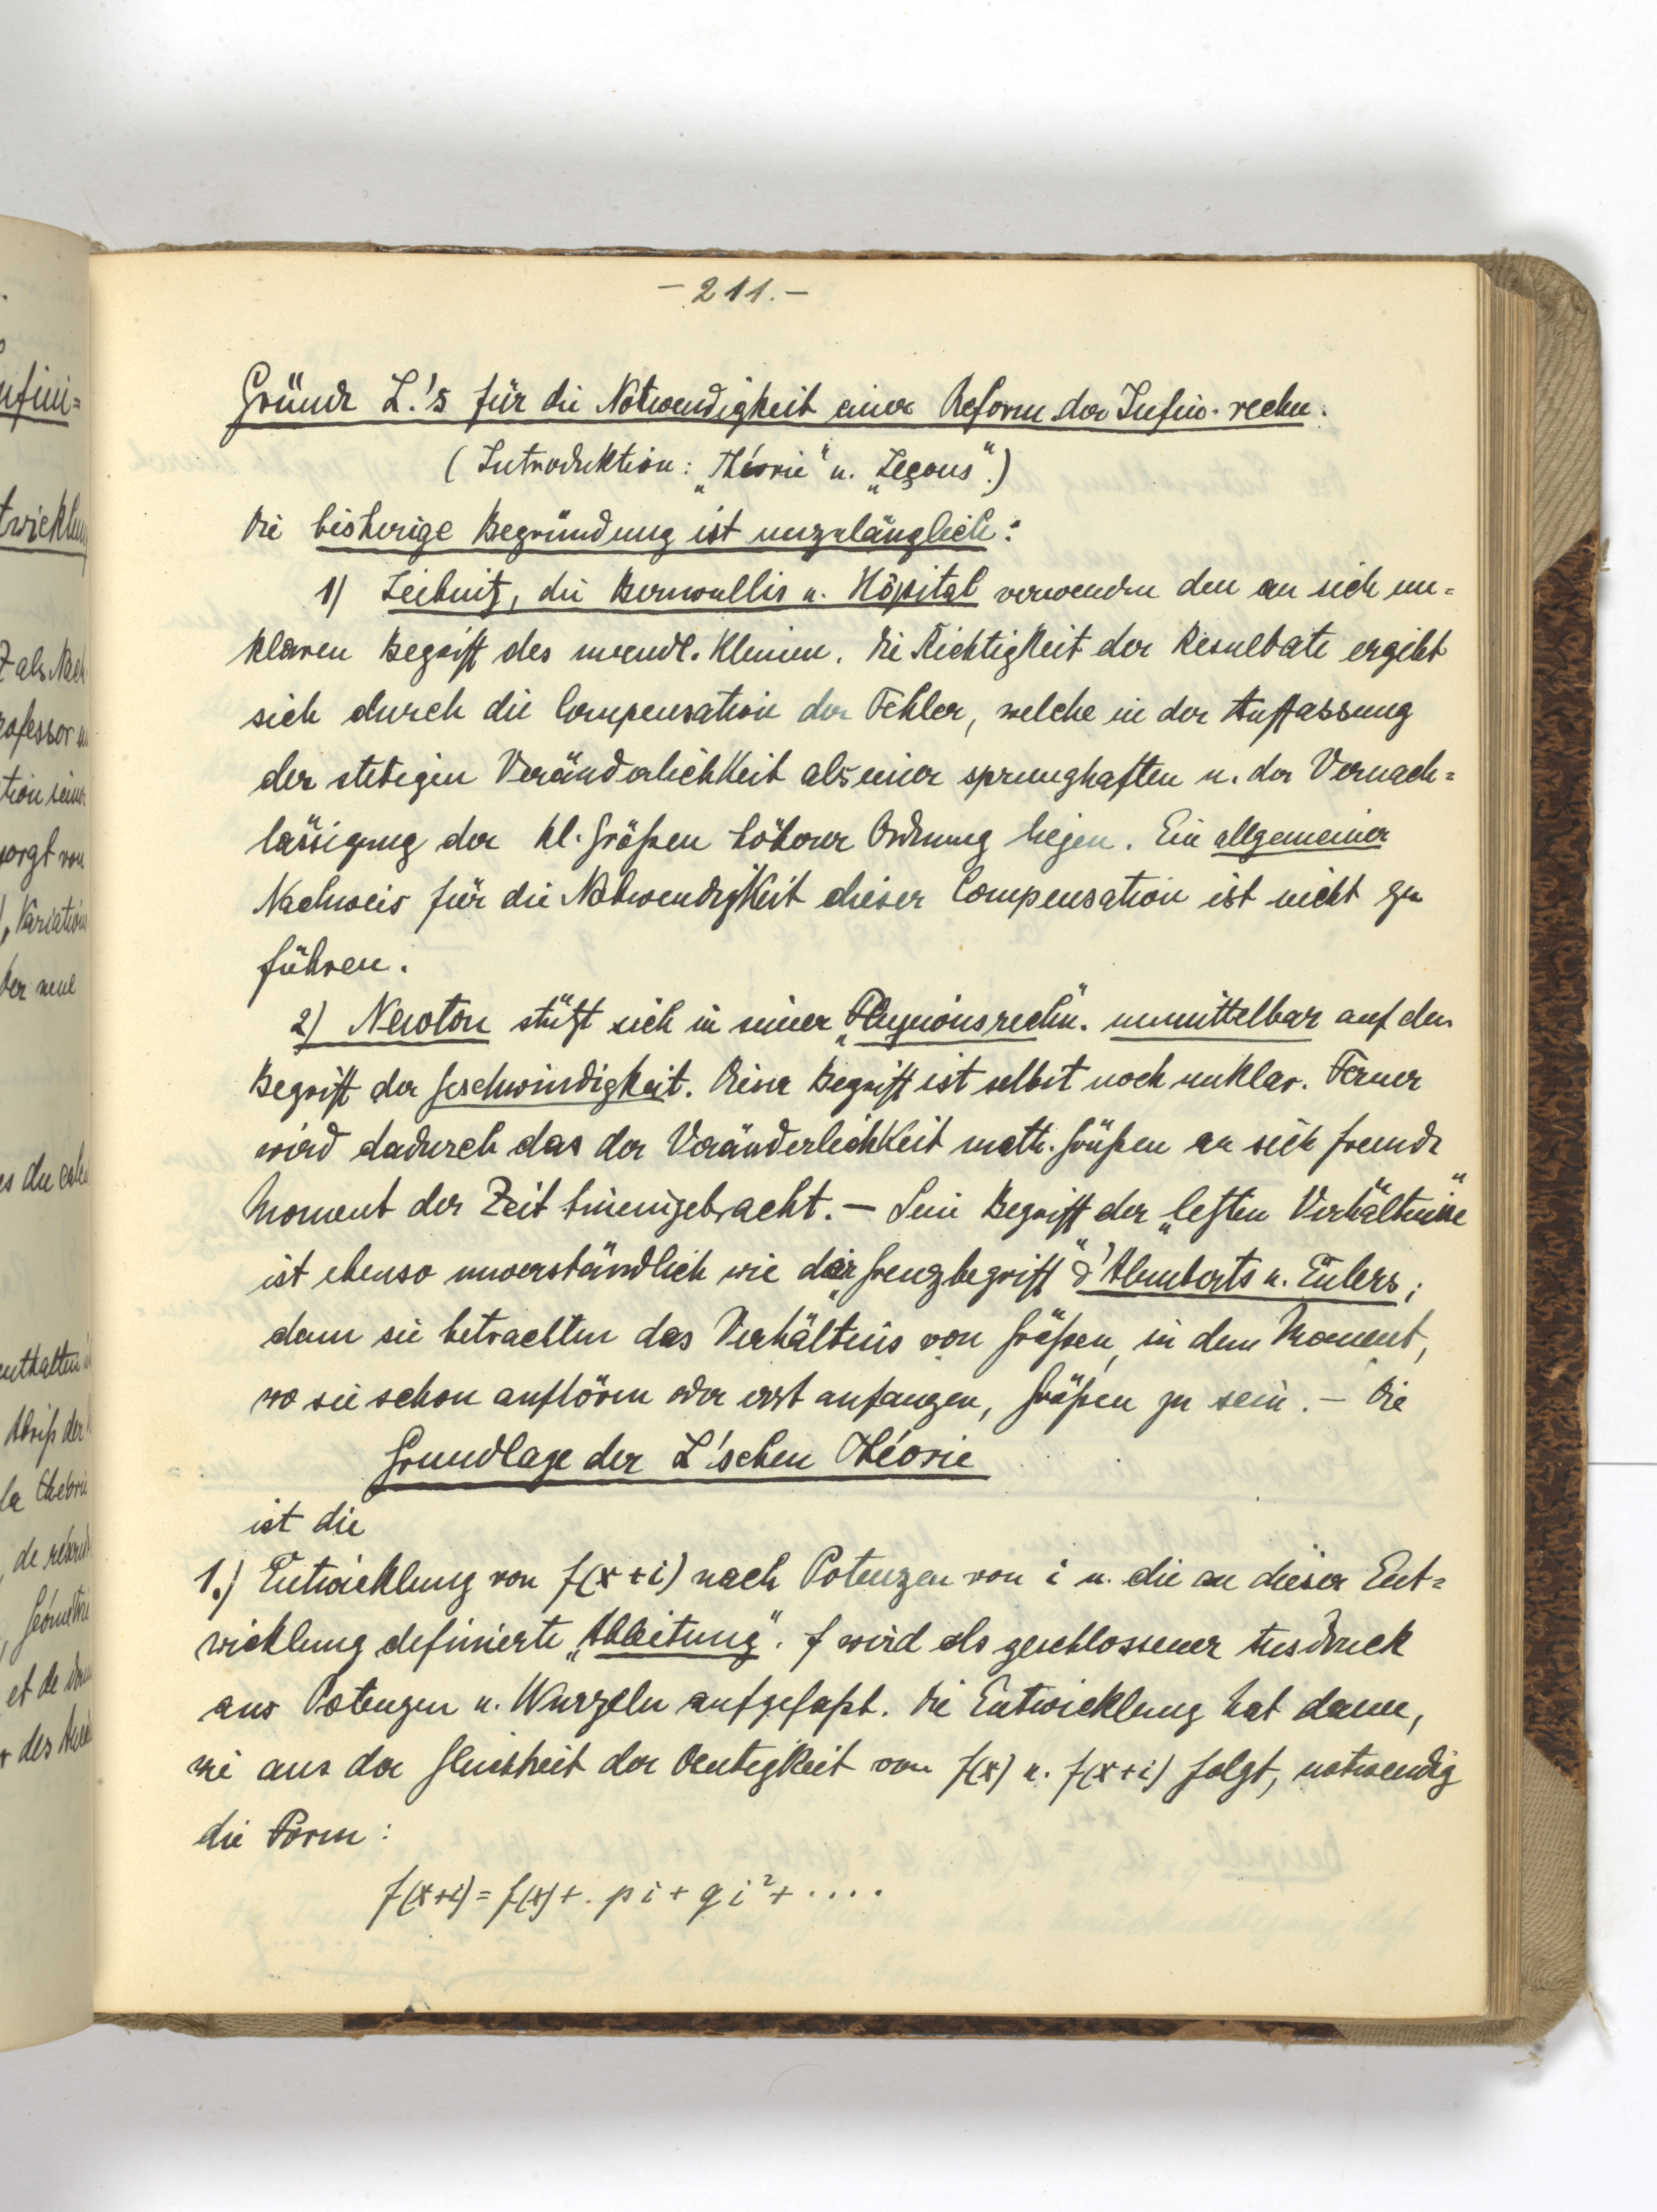 - 211. -
Gründe L.'s für die Notwendigkeit einer Reform der Infin. rechn.
(Introduktion: „Théorie" u. „Leçons".)
Die bisherige Begründung ist unzulänglich:
1) Leibnitz, die Bernoullis u. Hôpital verwenden den an sich un=
klaren Begriff des unendl. Kleinen. Die Richtigkeit der Resultate ergibt
sich durch die Compensation der Fehler, welche in der Auffassung
der stetigen Veränderlichkeit als einer sprunghaften u. der Vernach=
lässigung der kl. Größen höherer Ordnung liegen. Ein allgemeiner
Nachweis für die Notwendigkeit dieser Compensation ist nicht zu
führen.
2) Newton stützt sich in seiner „Fluxionsrechn." unmittelbar auf den
Begriff der Geschwindigkeit. Dieser Begriff ist selbst noch unklar. Ferner
wird dadurch das der Veränderlichkeit math. Größen an sich fremde
Moment der Zeit hineingebracht. – Sein Begriff der „letzten Verhältnisse"
ist ebenso unverständlich wie der „Grenzbegriff" d'Alemberts u. Eulers;
denn sie betrachten das Verhältnis von Größen, in dem Moment,
wo sie schon aufhören oder erst anfangen, Größen zu sein. – Die
Grundlage der L'schen Théorie
ist die
1.) Entwicklung von f(x+i) nach Potenzen von i u. die an dieser Ent=
wicklung definierte „Ableitung". f wird als geschlossener Ausdruck
aus Potenzen u. Wurzeln aufgefaßt. Die Entwicklung hat dann,
wie aus der Gleichheit der Deutigkeit von f(x) u. f(x+i) folgt, notwendig
die Form:
f(x+i) = f(x) + . p i + q i² + ....